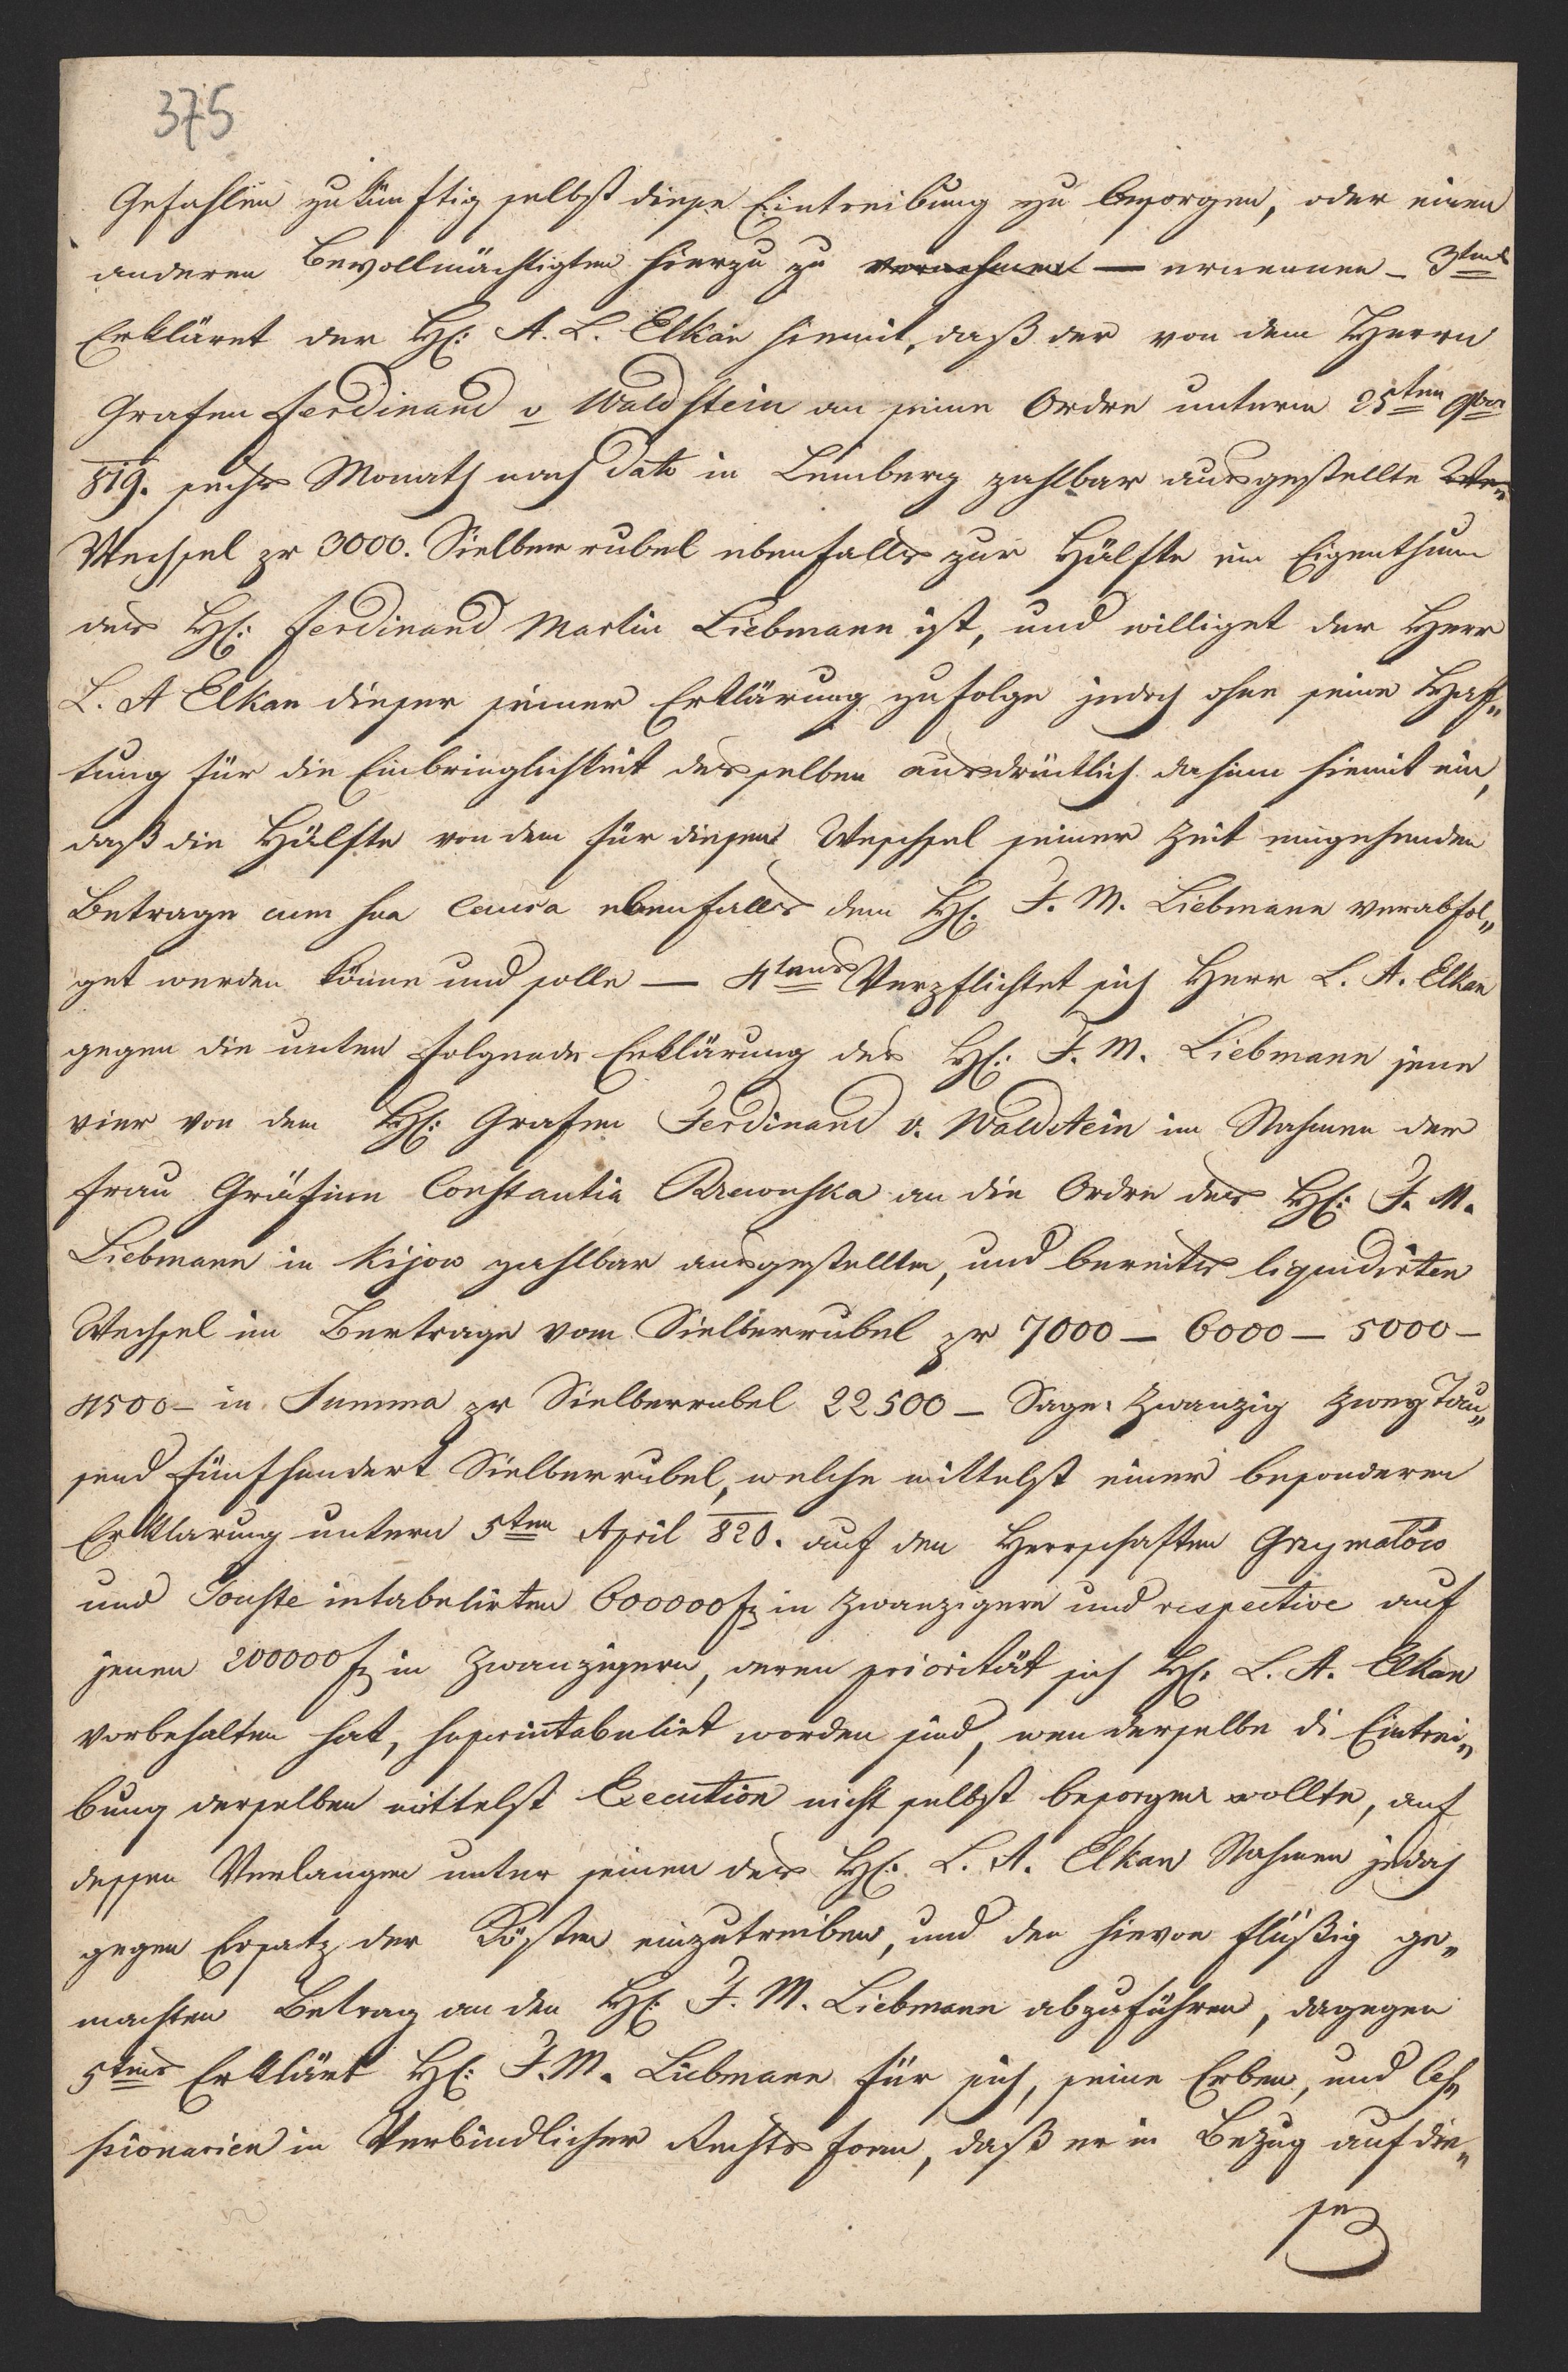 375
Gefahlen zukünftig selbst diese Eintreibung zu besorgen, oder einen
anderen Bevollmächtigten hierzu zu vornehmen — ernennen – 3tens
Erkläret der H: A. L. Elkan hiemit, daß der von dem Herrn
Grafen Ferdinand v Waldstein an seine Ordre unterm 25ten 9ber
819. sechs Monath nach Dato in Lemberg zahlbar ausgestellte We„
Wechsel pr 3000. Sielber rubel ebenfalls zur Hälfte ein Eigenthum
des H: Ferdinand Martin Liebmann ist, und williget der Herr
L. A Elkan dieser seiner Erklärung zufolge jedoch ohne seine Haf„
tung für die Einbringlichkeit desselben ausdrücklich dahinn hiemit ein,
daß die Hälfte von dem für diesen Weschsel seiner Zeit eingehenden
Betrage cum sua causa ebenfalls dem H: F. M. Liebmann verabfol„
get werden könne und solle — 4tens Verpflichtet sich Herr L. A. Elkan
gegen die unten folgende Erklärung des H: F. M. Liebmann jene
vier von dem H: Grafen Ferdinand v. Waldstein im Nahmen der
Frau Gräfinn Constantia Rzewuska an die Ordre des H: F. M.
Liebmann in Kijow zahlbar ausgestellten, und bereits liquidirten
Wechsel im Bertrage vom Sielberrubel pr 7000 – 6000 – 5000 –
4500 – in Summa pr Sielberrubel 22500 – Sage: Zwanzig Zwey Tau„
send Fünfhundert Sielberrubel, welche mittelst einer besonderen
Erklarung untern 5ten April 820. auf den Herrschaften Grzymałów
und Touste intabulirten 600000 f in Zwanzigern und respective auf
jenen 200000 f in Zwanzigern, deren priorität sich H: L. A. Elkan
vorbehalten hat, superintabulirt worden sind, wen derselbe di Eintrei„
bung derselben mittelst Execution nicht selbst besorgen wollte, auf
dessen Verlangen unter seinen des H: L. A. Elkan Nahmen jedoch
gegen Ersatz der Kösten einzutreiben, und den hievon flüßig ge„
machten Betrag an den H: F. M. Liebmann abzuführen, dagegen
5tens Erklärt H: F. M. Liebmann für sich, seine Erben, und Ces„
sionarien in Verbindlicher Rechts form, daß er in Bezug auf die„
se